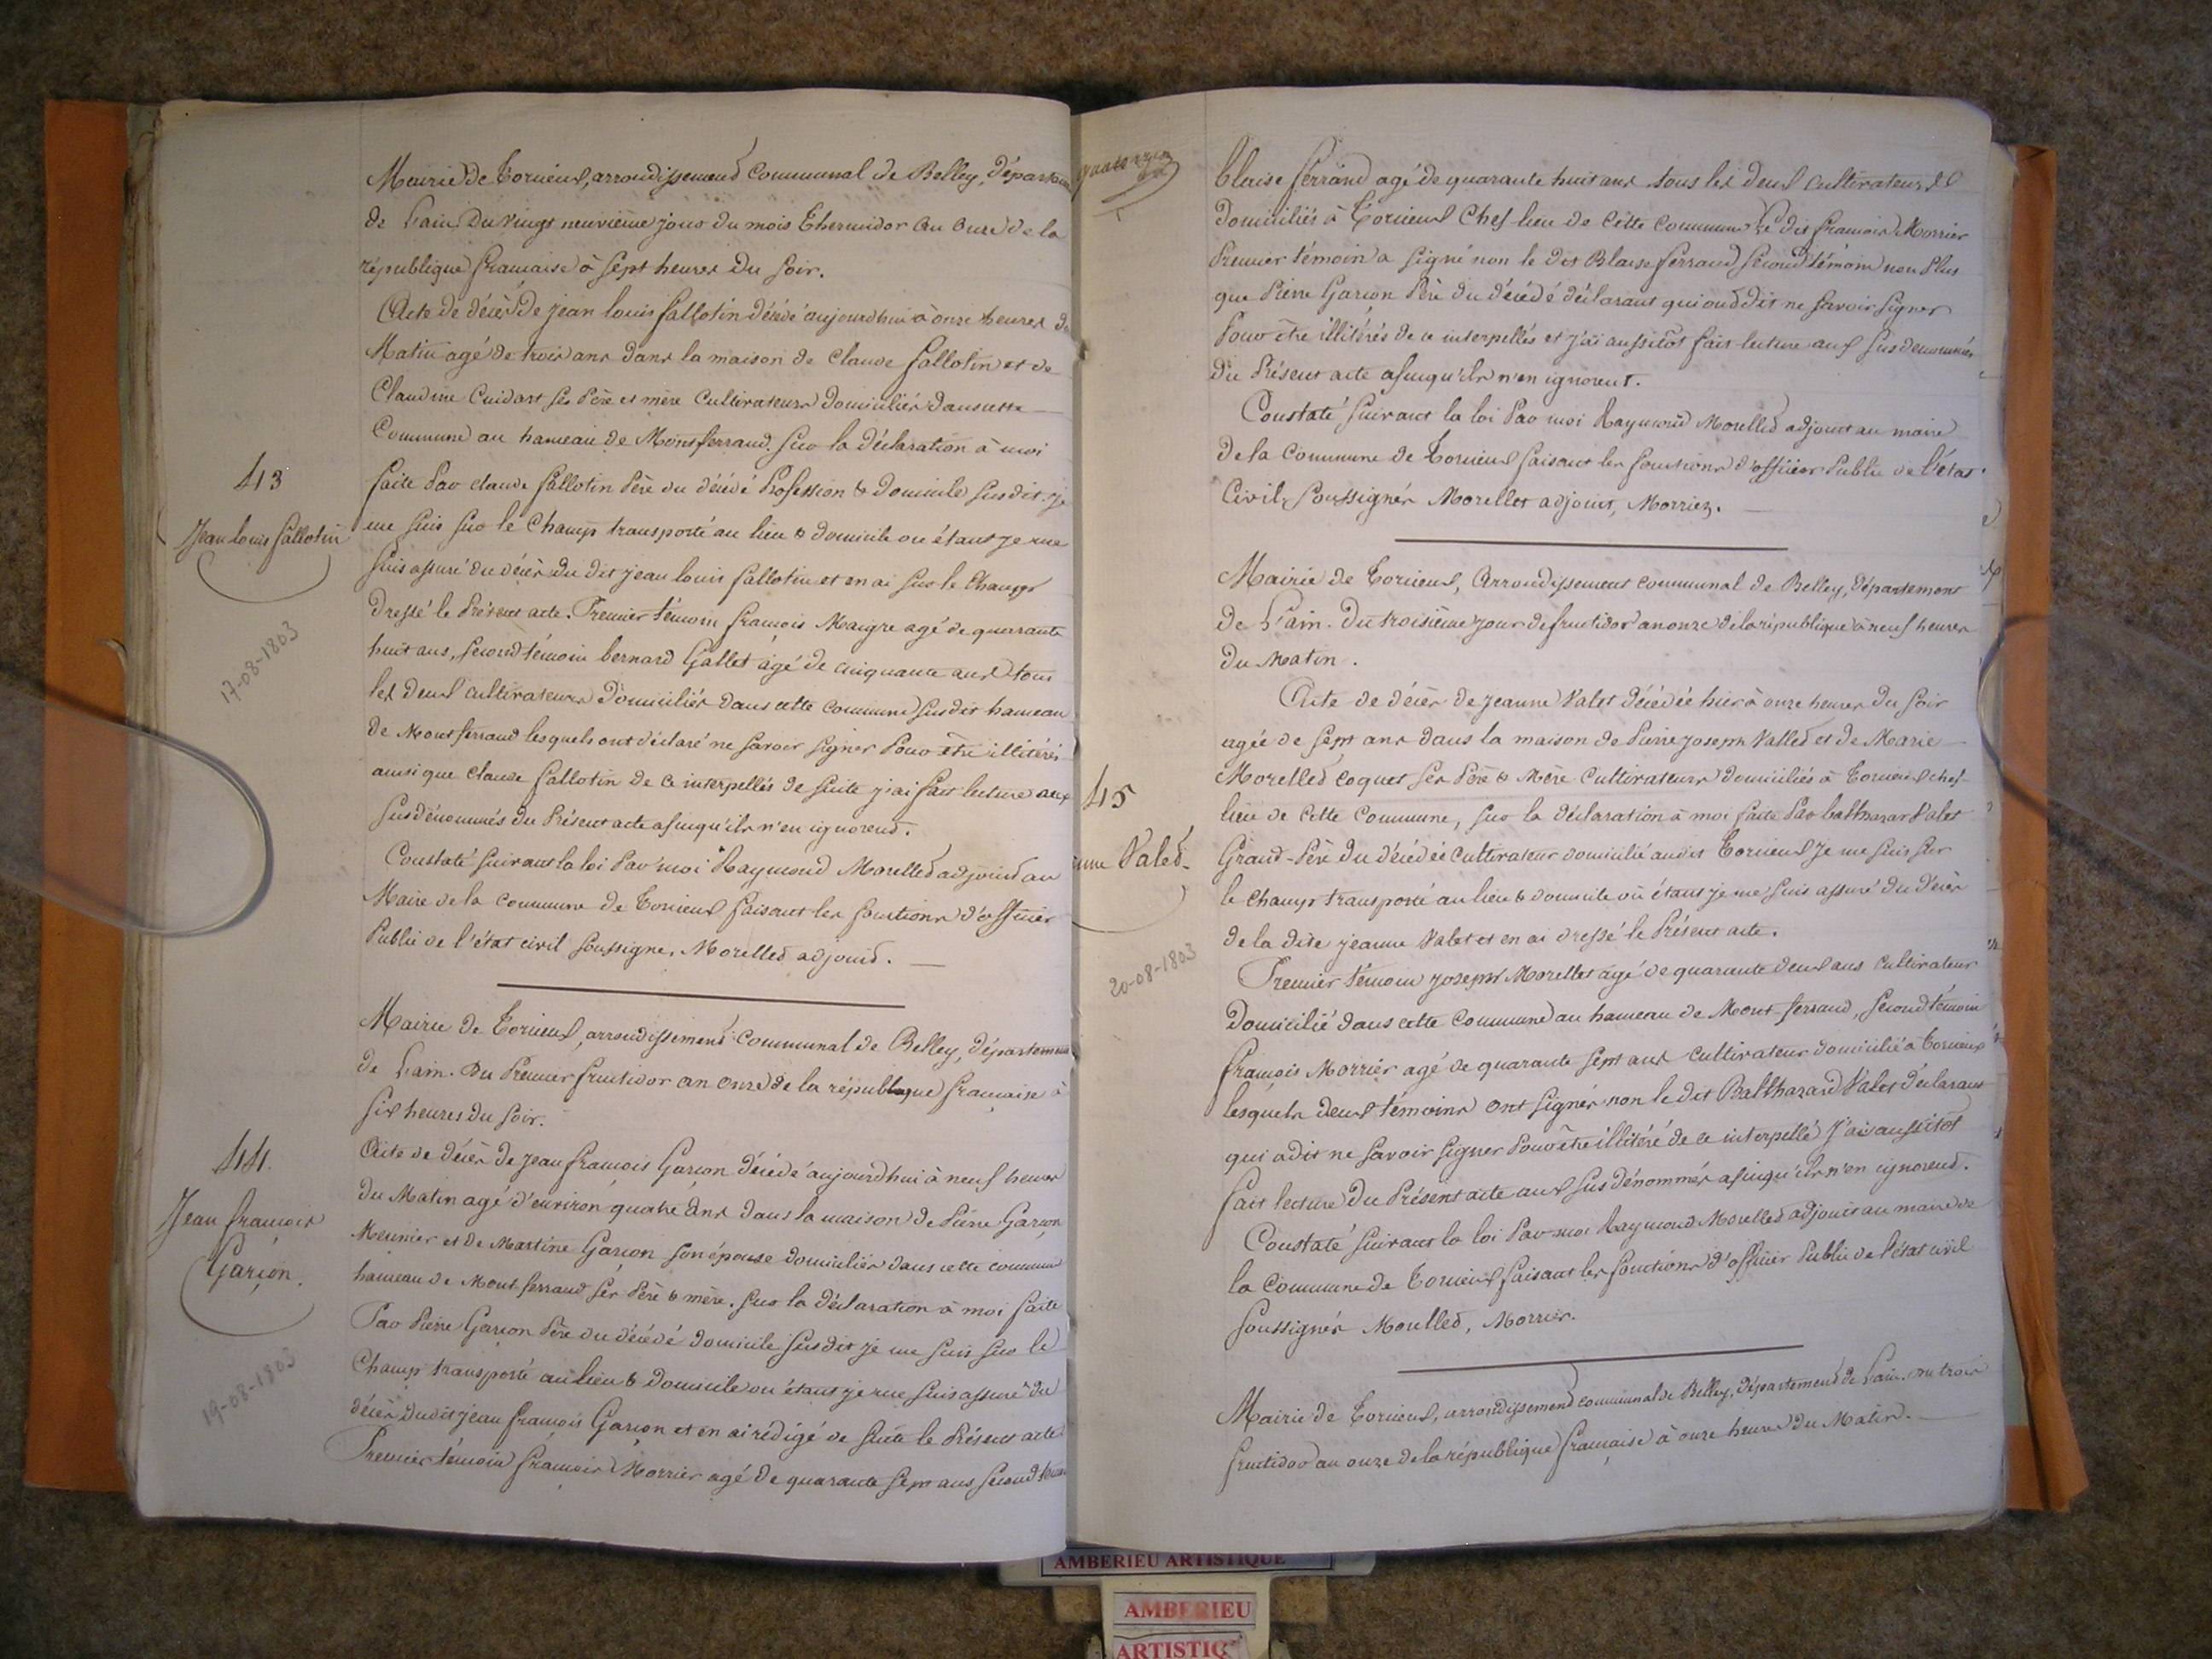 Mairie de Torcieux, arrondissement Communal de Belley, départem
de Lain. Du vingt neuvième jour du mois Thermidor an onze de la
république française à sept heures du soir.
Acte de décès de jean louis fallotin décédé aujourdhui à onze heures du
Matin agé de trois ans dans la maison de claude fallotin et de
Claudine Cuidart ses Père et mère Cultivateurs domiciliés dans cette
Commune au hameau de Montferrand. sur la déclaration à moi
43
faite Par claude fallotin Père du décédé Profession & domicile susdit. je
Jean louis fallotin
me suis sur le Champ transporté au lieu & domicile ou étant je me
suis assuré du décès du dit jean louis fallotin et en ai sur le Champ
dressé le Présent acte. Premier témoin françois Maigre agé de quarante
17-08-1803
huit ans, second témoin bernard Gallet agé de cinquante ans tous
les deux cultivateurs domiciliés dans cette commune susdit hameau
de Montferrand lesquels ont déclaré ne savoir signer Pour être illitérés
ainsi que claude fallotin de ce interpellés de suite j'ai fait lecture aux
susdénommés du Présent acte afinqu'ils n'en ignorend.
Constaté suivant la loi Par moi Raymond Morelled adjoind au
Maire de la commune de Torcieux faisant les fonctions d'officier
Public de l'état civil soussigné. Morelled adjoind.
Mairie de Torcieux, arrondissement Communal de Belley, département
de Lain. Du Premier fructidor an onze de la république française à
six heures du soir.
44.
Acte de décès de Jean françois Garçon décédé aujourdhui à neuf heures
Jean françois
du Matin agé d'environ quatre ans dans la maison de Pierre Garçon
Garçon.
Meunier et de Martine Garçon son épouse domiciliés dans cette commune
hameau de Montferrand ses Père & mère. sur la déclaration à moi faite
Par Pierre Garçon Père du décédé domicile susdit je me suis sur le
19-08-1803
Champ transporté au lieu & domicile ou étant je me suis assuré du
décès dudit jean françois Garçon et en ai rédigé de suite le Présent acte
Premier témoin françois Morrier agé de quarante sept ans second témoin
quatorzieme
blaise ferrand agé de quarante huit ans tous les deux cultivateurs
domiciliés à Torcieux Chef lieu de cette commune le dit françois Morrier
Premier témoin a signé non le dit Blaise ferrand second témoin non Plus
que Pierre Garçon Père du décédé déclarant qui ond dit ne savoir signer
Pour être illitérés de ce interpellés et j'ai aussitôt fait lecture aux susdénommés
du Présent acte afinqu'ils n'en ignorent.
Constaté suivant la loi Par moi Raymond Morelled adjoint au maire
de la Commune de Torcieux faisant les fonctions d'officier Public de l'état
Civil, soussignés Morellet adjoint, Morriez.
Mairie de Torcieux, Arrondissement communal de Belley, département
de Lain. Du troisième jour de fructidor an onze de la république à neuf heures
du Matin.
Acte de décès de jeanne Valet décédée hier à onze heures du soir
agée de sept ans dans la maison de Pierre joseph Valled et de Marie
45
Morelled coquet ses Père & Mère Cultivateurs domiciliés à Torcieux chef-
lieu de cette commune, sur la déclaration à moi faite Par balthazar Valet
nne Valed
Grand-Père du décédée cultivateur domicilié audit Torcieux je me suis sur
le champs transporté au lieu & domicile où étant je me suis assuré du décès
de la dite jeanne Valet et en ai dressé le Présent acte.
20-08-1803
Premier témoin joseph Morellet agé de quarante deux ans cultivateur
domicilié dans cette commune au hameau de Mont-ferrand, second témoin
françois Morrier agé de quarante sept ans cultivateur domicilié à Torcieux
lesquels deux témoins ont signés non le dit Balthazard Valet déclarant
qui a dit ne savoir signer Pour être illitéré de ce interpellé j'ai aussitôt
fait lecture du Présent acte aux susdénommés afinqu'ils n'en ignorend.
Constaté suivant la loi Par moi Raymond Morelled adjoint au maire de
la Commune de Torcieux faisant les fonctions d'officier Public de l'état civil
soussignés Morelled, Morrier.
Mairie de Torcieux, arrondissemend communal de Belley, départemend de Lain. du trois
fructidor an onze de la république française à onze heures du Matin.
AMBERIEU ARTISTIQUE
AMBERIEU
ARTISTIQ